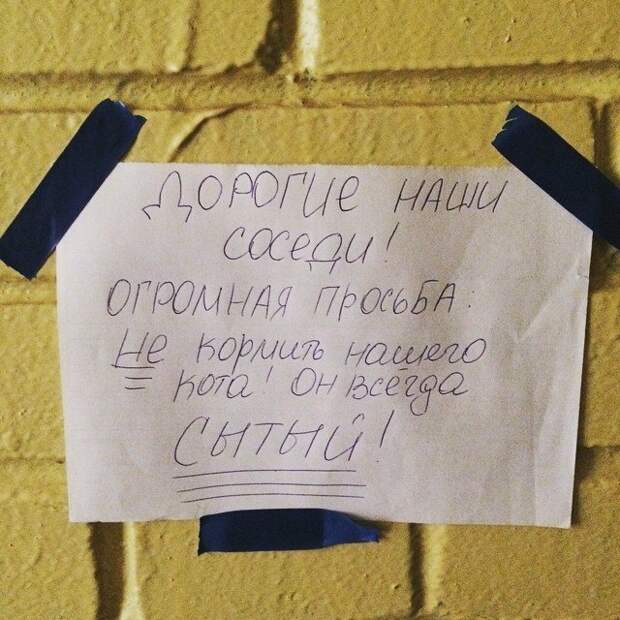 ДОРОГИЕ НАШИ
СОСЕДИ!
ОГРОМНАЯ ПРОСЬБА:
Не кормить нашего
кота! Он всегда
СЫТЫЙ!